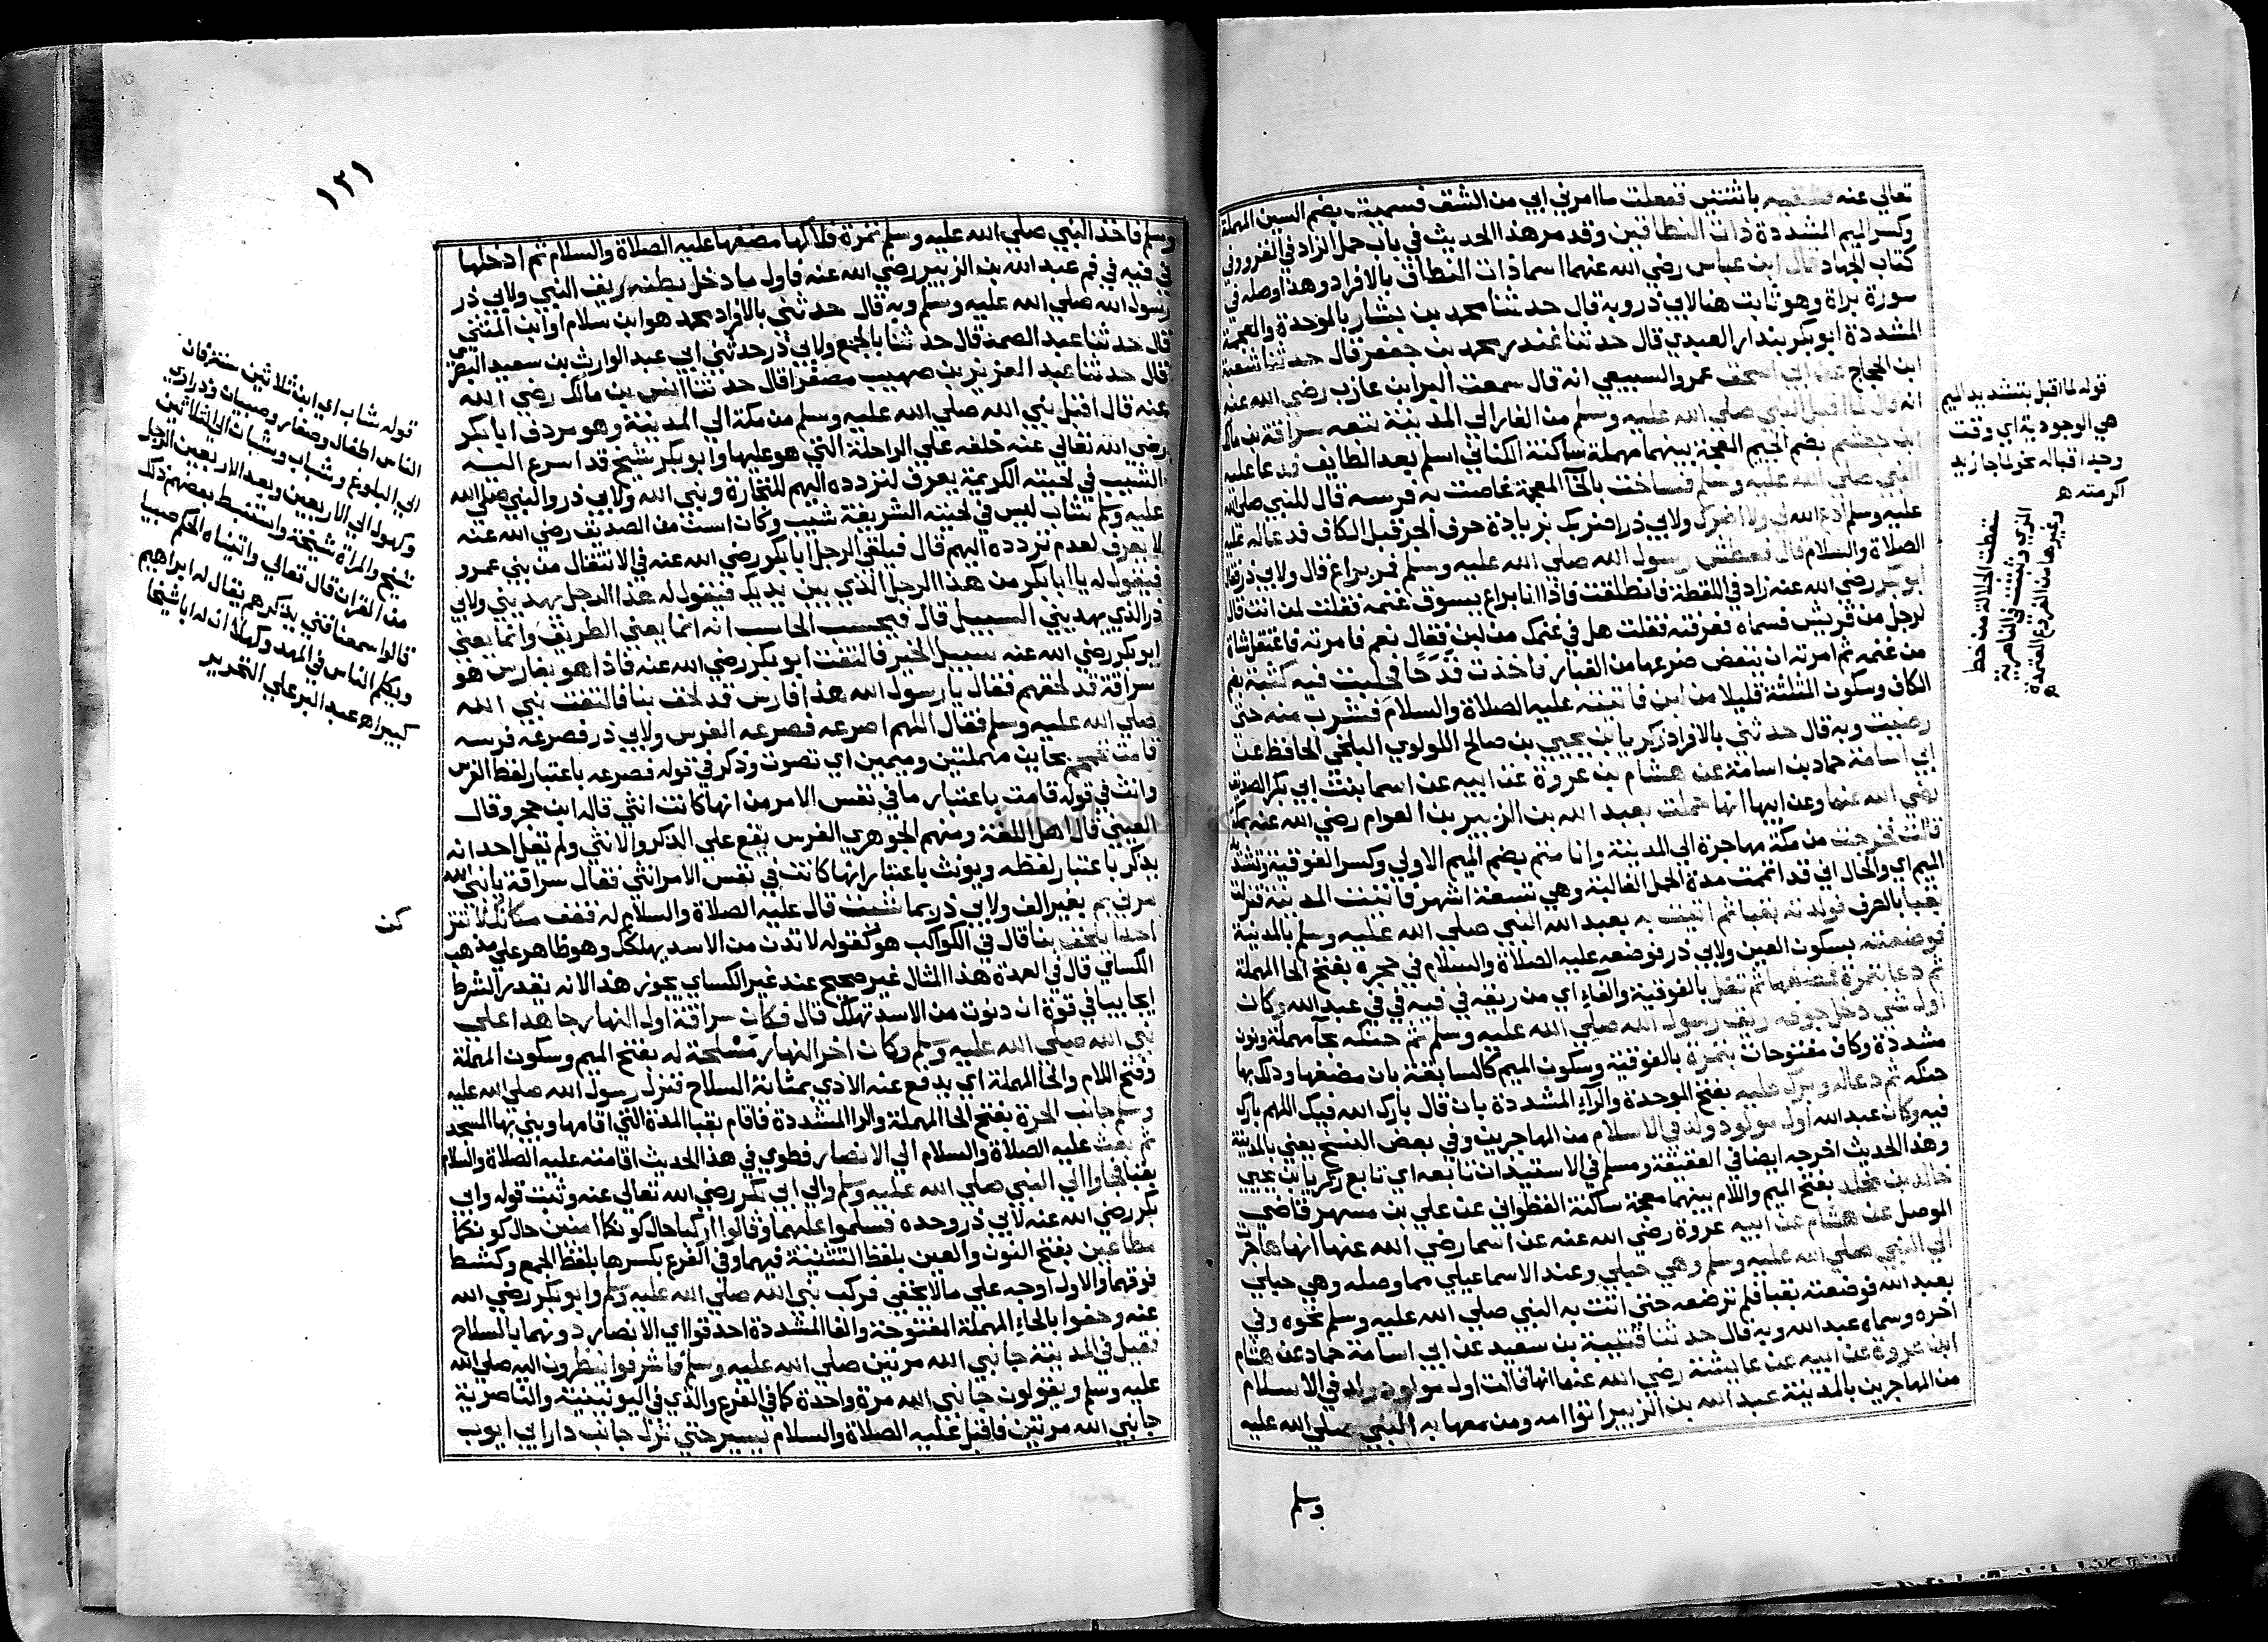 تعالي عنه فشقيه باثنتين ففعلت ما امرني ابي من الشق فسميت بضم السين المهملة
وكسر الميم المشددة ذات النطاقين وقد مر هذا الحديث في باب حمل الزاد في الغزو وفي
كتاب الجهاد قال ابن عباس رضي الله عنهما اسما ذات النطاق بالافراد وهذا وصله في
سورة براة وهو ثابت هنا لابي ذر وبه قال حدثنا محمد بن بشار بالموحدة والمعجمة
المشددة ابو بكر بندار العبدي قال حدثنا غندر محمد بن جعفر قال حدثنا شعبة
ابن الحجاج عن ابي اسحق عمرو السبيعي انه قال سمعت البرا بن عازب رضي الله عنه
انه قال لما اقبل النبي صلي الله عليه وسلم من الغار الي المدينة تبعه سراقة بن مالك
ابن جعشم بضم الجيم المعجمة بينهما مهملة ساكنة الكناني اسلم بعد الطايف فدعا عليه
النبي صلي الله عليه وسلم فساخت بالخا المعجمة غاصت به فرسه قال للنبي صلي الله
عليه وسلم ادع الله لي ولا اضرك ولابي ذر اضر بك بزيادة حرف الجر قبل الكاف فدعا له عليه
الصلاة والسلام قال فعطش رسول الله صلي الله عليه وسلم فمر براع قال ولابي ذر فقال
ابو بكر رضي الله عنه زاد في اللقطة فانطلقت فاذا انا براع يسوق غنمه فقلت لمن انت قال
لرجل من قريش فسماه فعرفته فقلت هل في غنمك من لبن فقال نعم فامرته فاعتقل شاة
من غنمه ثم امرته ان ينفض ضرعها من الغبار فاخذت قدحا فحلبت فيه كثبة بضم
الكاف وسكون المثلثة قليلا من لبن فاتيته عليه الصلاة والسلام فشرب منه حتي
رضيت وبه قال حدثني بالافراد زكريا بن يحيي بن صالح اللولوي البلخي الحافظ عن
ابي اسامة حماد بن اسامة عن هشام بن عروة عن ابيه عن اسما بنت ابي بكر الصديق
رضي الله عنها وعن ابيها انها حملت بعبد الله بن الزبير بن العوام رضي الله عنه بمكة
قالت فخرجت من مكة مهاجرة الي المدينة وانا متم بضم الميم الاولي وكسر الفوقية وتشديد
الميم اي والحال اني قد اتممت مدة الحمل الغالبة وهي تسعة اشهر فاتيت المدينة فنزلت
بقبا بالصرف فولدته بقبا ثم اتيت به بعبد الله النبي صلي الله عليه وسلم بالمدينة
فوضعته بسكون العين ولابي ذر فوضعه عليه الصلاة والسلام في حجره بفتح الحا المهملة
ثم دعا بتمرة فمضغها ثم تفل بالفوقية والفاء اي من ريقه في فيه في في عبد الله وكان
اول شي دخل جوفه ريق رسول الله صلي الله عليه وسلم ثم حنكه بحا مهملة ونون
مشددة وكاف مفتوحات بتمرة بالفوقية وسكون الميم كالسابقة بان مضغها ودلك بها
حنكه ثم دعا له وبرك عليه بفتح الموحدة والراء المشددة بان قال بارك الله فيك اللهم بارك
فيه وكان عبد الله اول مولود ولد في الاسلام من المهاجرين وفي بعض النسخ يعني بالمدينة
وهذا الحديث اخرجه ايضا في العقيقة ومسلم في الاستيذان تابعه اي تابع زكريا بن يحيي
خالد بن مخلد بفتح الميم واللام بينهما معجمة ساكنة القطواني عن علي بن مسهر قاضي
الموصل عن هشام عن ابيه عروة رضي الله عنه عن اسما رضي الله عنها انها هاجرت
الي النبي صلي الله عليه وسلم وهي حبلي وعند الاسماعيلي مما وصله وهي حبلي
بعبد الله فوضعته بقبا فلم ترضعه حتي اتت به النبي صلي الله عليه وسلم نحوه وفي
اخره وسماه عبد الله وبه قال حدثنا قتيبة بن سعيد عن ابي اسامة حماد عن هشام
ابن عروة عن ابيه عن عايشة رضي الله عنها انها قالت اول مولود ولد في الاسلام
من المهاجرين بالمدينة عبد الله بن الزبير اتوا امه ومن معها به النبي صلي الله عليه
وسلم
قوله لما اقبل بتشديد الميم
هي الوجودية اي وقت
وجد اقباله
اكرمته ه
سقطت الجلالة من خط
المزي وثبتت في الناصرية
وغيرها من الفروع المعتمدة
ه
١٢١
وسلم فاخذ النبي صلي الله عليه وسلم تمرة فلاكها مضغها عليه الصلاة والسلام ثم ادخلها
في فيه في فم عبد الله بن الزبير رضي الله عنه فاول ما دخل بطنه ريق النبي ولابي ذر
رسول الله صلي الله عليه وسلم وبه قال حدثني بالافراد محمد هو ابن سلام او ابن المثني
قال حدثنا عبد الصمد قال حدثنا بالجمع ولابي ذر حدثني ابي عبد الوارث بن سعيد البصري
قال حدثنا عبد العزيز بن صهيب مصغرا قال حدثنا انس بن مالك رضي الله
عنه قال اقبل نبي الله صلي الله عليه وسلم من مكة الي المدينة وهو مردف ابا بكر
رضي الله تعالي عنه خلفه علي الراحلة التي هو عليها وابو بكر شيخ قد اسرع اليه
الشيب في لحيته الكريمة يعرف لتردده اليهم للتجارة ونبي الله ولابي ذر والنبي صلي الله
عليه وسلم شاب ليس في لحيته الشريفة شيب وكان اسن من الصديق رضي الله عنه
لا يعرف لعدم تردده اليهم قال فيلقي الرجل ابا بكر رضي الله عنه في الانتقال من بني عمرو
فيقول له يا ابا بكر من هذا الرجل الذي بين يديك فيقول له هذا الرجل يهديني ولابي
ذر الذي يهديني السبيل قال فيحسب الحاسب انه انما يعني الطريق وانما يعني
ابو بكر رضي الله عنه سبيل الخير فالتفت ابو بكر رضي الله عنه فاذا هو بفارس هو
سراقة قد لحقهم فقال يا رسول الله هذا فارس قد لحق بنا فالتفت نبي الله
صلي الله عليه وسلم فقال اللهم اصرعه فصرعه الفرس ولابي ذر فصرعه فرسه
قامت تحمحم بحاين مهملتين وميمين اي تصوت وذكر في قوله فصرعه باعتبار لفظ الفرس
وانث في قوله قامت باعتبار ما في نفس الامر من انها كانت انثي قاله ابن حجر وقال
العيني قال اهل اللغة ومنهم الجوهري الفرس يقع علي الذكر والانثي ولم يقل احد انه
يذكر باعتبار لفظه ويونث باعتبار انها كانت في نفس الامر انثي فقال سراقة يا نبي الله
مرني بم بغير الف ولابي ذر بما شئت قال عليه الصلاة والسلام له فقف مكانك لا تتركن
احدا يلحق بنا قال في الكواكب هو كقوله لا تدن من الاسد يهلكك وهو ظاهر علي مذهب
الكساي قال في العمدة هذا المثال غير صحيح عند غير الكساي يجوز هذا لانه يقدر الشرط
ايجابيا في قوة ان دنوت من الاسد تهلك قال فكان سراقة اول النهار جاهدا علي
نبي الله صلي الله عليه وسلم وكان اخر النهار مسلحة له بفتح الميم وسكون المهملة
وفتح اللام والحا المهملة اي يدفع عنه الاذي بمثابة السلاح فنزل رسول الله صلي الله عليه
وسلم جانب الحرة بفتح الحا المهملة والرا المشددة فاقام بقبا المدة التي اقامها وبني بها المسجد
ثم بعث عليه الصلاة والسلام الي الانصار فطوي في هذا الحديث اقامته عليه الصلاة والسلام
بقبا فجاوا الي النبي صلي الله عليه وسلم والي ابي بكر رضي الله تعالي عنه وثبت قوله وابي
بكر رضي الله عنه لابي ذر وحده فسلموا عليهما وقالوا اركبا حال كونكما امنين حال كونكما
مطاعين بفتح النون والعين بلفظ التثنية فيهما وفي الفرع بكسرها بلفظ الجمع وكشط
فوقهما والاول اوجه علي ما لا يخفي فركب نبي الله صلي الله عليه وسلم وابو بكر رضي الله
عنه وحفوا بالحاء المهملة المفتوحة والفا المشددة احدقوا اي الانصار دونهما بالسلاح
فقيل في المدينة جا نبي الله مرتين صلي الله عليه وسلم فاشرفوا ينظرون اليه صلي الله
عليه وسلم ويقولون جا نبي الله مرة واحدة كما في الفرع والذي في اليونينية والناصرية
جا نبي الله مرتين فاقبل عليه الصلاة والسلام يسير حتي نزل جانب دار ابي ايوب
قوله شاب اي ابن ثلاثين سنة فان
الناس اطفال وصغار وصبيان وذراري
الي البلوغ وشباب وشبان الي الثلاثين
وكهول الي الاربعين وبعد الاربعين الرجل
شيخ والمراة شيخة واستنبط بعضهم ذلك
من القران قال تعالي واتيناه الحكم صبيا
قالوا سمعنا فتي يذكرهم يقال له ابراهيم
ويكلم الناس في المهد وكهلا ان له ابا شيخا
كبيرا اهـ عبد البر علي التحرير
كن